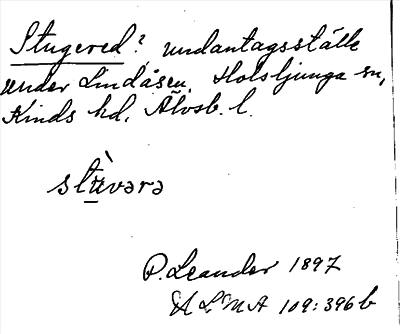 Stugered?, undantagsställe
under Lindåsen, Holsljunga sn,
Kinds hd. Älvsb. l.
stùvərə
P. Leander 1897
ULMA 109:396 b